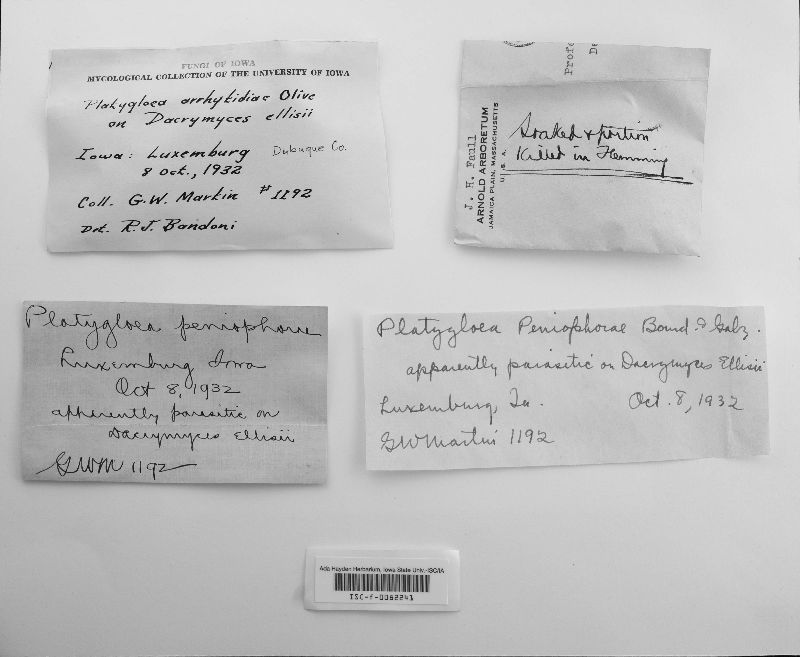 FUNGI OF IOWA
MYCOLOGICAL COLLECTION OF THE UNIVERSITY OF IOWA
Platygloea arrhytidiae Olive
on Dacrymyces ellisii
Iowa: Luxemburg Dubuque Co.
8 Oct., 1932
Coll. G.W. Martin #1192
Det. R.J. Bandoni
Profe
De
J. H. Faull
ARNOLD ARBORETUM
JAMAICA PLAIN, MASSACHUSETTS
U. S. A.
Soaked & portion
Killed in Flemming
Platygloea peniophorae
Luxemburg Iowa
Oct 8, 1932
apparently parasitic on
Dacrymyces Ellisii
GWM 1192
Platygloea Peniophorae Bourd. & Galz.
apparently parasitic on Dacrymyces Ellisii
Luxemburg, Ia. Oct. 8, 1932
GWMartin 1192
Ada Hayden Herbarium, Iowa State Univ.-ISC/IA
ISC-F-0082241